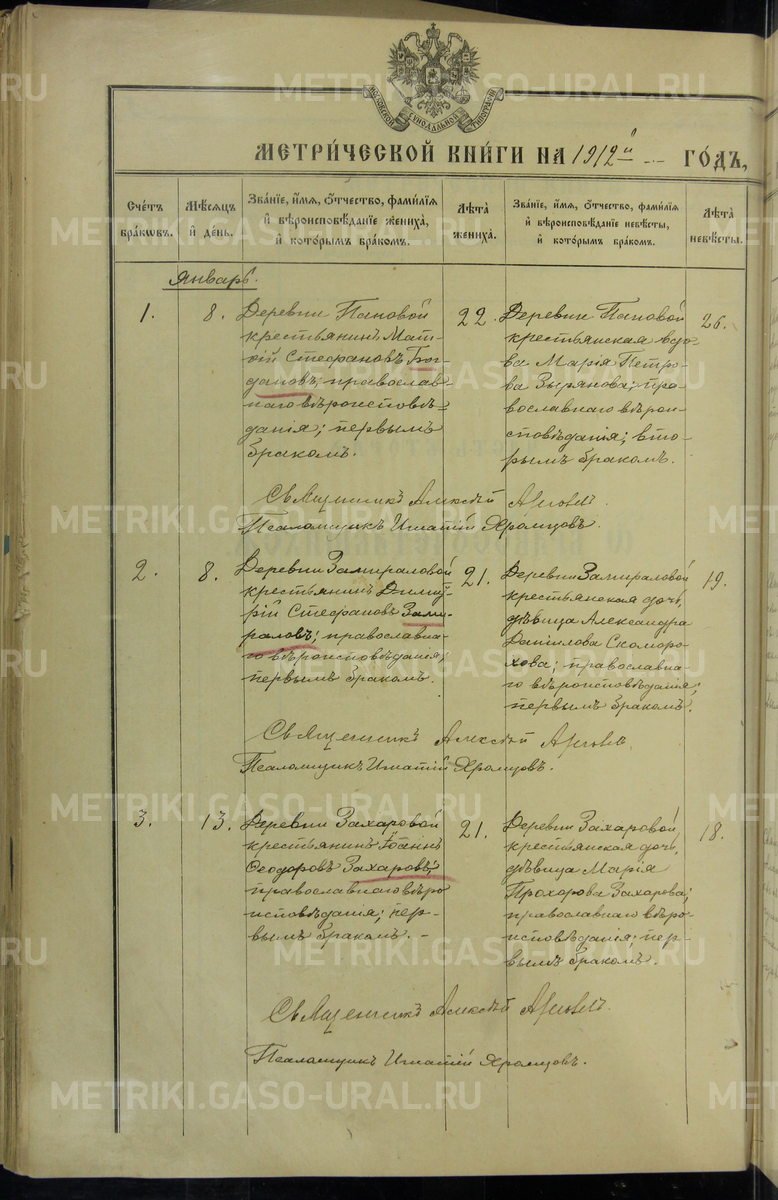 МОСКОВСКОЙ СУНОДАЛЬНОЙ ТИПОГРАФІИ
МЕТРИЧЕСКОЙ КНИГИ НА 1912й ГОДЪ,
Счетъ браковъ.
Мѣсяцъ и день.
Званіе, имя, отчество, фамилія
и вѣроисповѣданіе жениха,
и которымъ бракомъ.
Лѣта жениха.
Званіе, имя, отчество, фамилія
и вѣроисповѣданіе невѣсты,
и которымъ бракомъ.
Лѣта невѣсты.
Январь.
1.
8.
Деревни Пановой
крестьянинъ Мат-
ѳій Стефановъ Бог-
дановъ; православ-
наго вѣроисповѣ-
данія; первымъ
бракомъ.
22.
Деревни Пановой
крестьянская вдо-
ва Марія Петро-
ва Зырянова; пра-
вославнаго вѣрои-
сповѣданія; вто-
рымъ бракомъ.
26.
Священникъ Алексѣй
Псаломщикъ Игнатій Храмцовъ.
2.
8.
Деревни Замираловой
крестьянинъ Димит-
рій Стефановъ Зами-
раловъ; православна-
го вѣроисповѣданія;
первымъ бракомъ.
21.
Деревни Замираловой
крестьянская дочь,
дѣвица Александра
Даніилова Скоморо-
хова; православна-
го вѣроисповѣданія;
первымъ бракомъ.
19.
Священникъ Алексѣй
Псаломщикъ Игнатій Храмцовъ.
3.
13.
Деревни Захаровой
крестьянинъ Іоаннъ
Ѳеодоровъ Захаровъ;
православнаго вѣро
исповѣданія; пер-
вымъ бракомъ. -
21.
Деревни Захаровой,
крестьянская дочь,
дѣвица Марія
Прохорова Захарова;
православнаго вѣро-
исповѣданія; пер-
вымъ бракомъ.
18.
Священникъ Алексѣй
Псаломщикъ Игнатій Храмцовъ.
METRIKI.GASO-URAL.RU